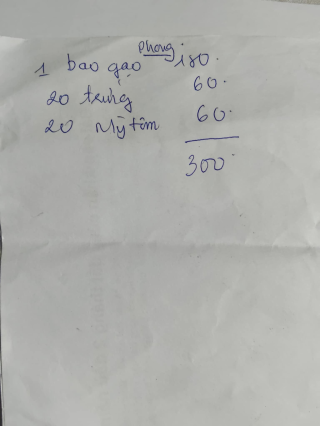 Phong
1 bao gạo 180.
20 trứng 60.
20 Mỳ tôm 60.
300